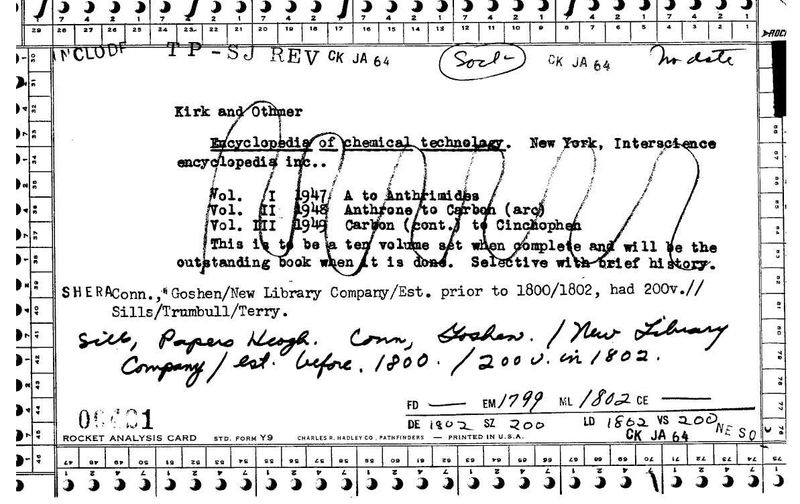 INCLUDE TP-SJ REV CK JA 64 Socl- CK JA 64 no date
Kirk and Othmer
Encyclopedia of chemical technology. New York, Interscience
encyclopedia inc..
Vol. I 1947 A to Anthrimides
Vol. II 1948 Anthrone to Carbon (arc)
Vol. III 1949 Carbon (cont.) to Cinchophen
This is to be a ten volume set when complete and will be the
outstanding book when it is done. Selective with brief history.
SHERA Conn.," Goshen/New Library Company/Est. prior to 1800/1802, had 200v.//
Sills/Trumbull/Terry.
Sill, Papers Heogh. Conn, Goshen. / New Library
Company / est. before. 1800. / 200 v. in 1802.
FD — EM 1799 ML 1802 CE —
DE 1802 SZ 200 LD 1802 VS 200
CK JA 64 NE SO
ROCKET ANALYSIS CARD STD. FORM Y9 CHARLES R. HADLEY CO., PATHFINDERS — PRINTED IN U.S.A.